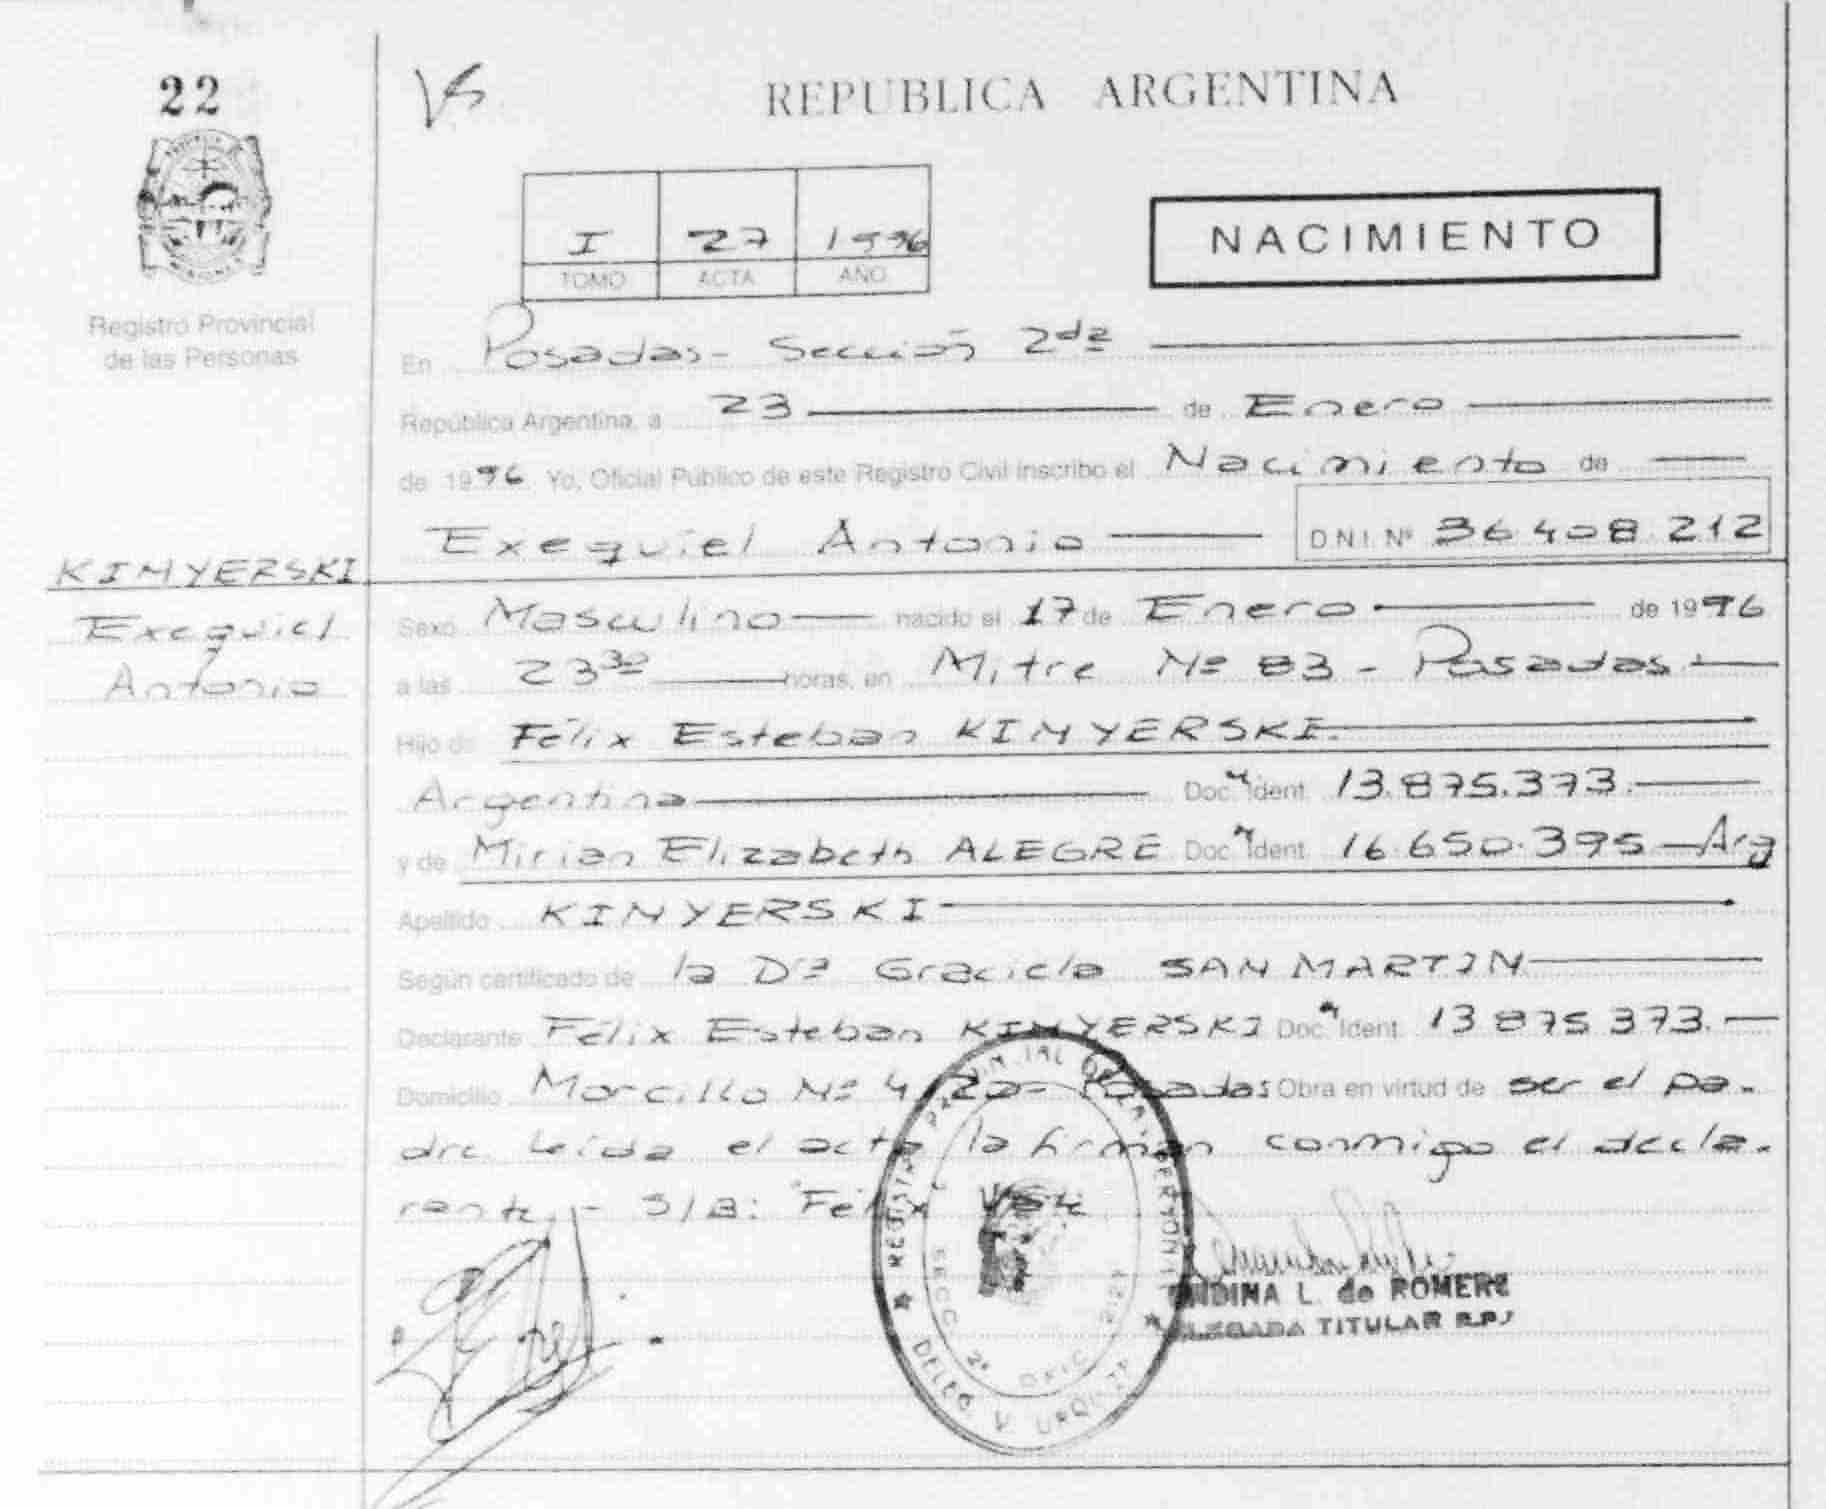 22
REPUBLICA ARGENTINA
I 27 1996
TOMO ACTA AÑO
NACIMIENTO
Registro Provincial
de las Personas
En Posadas- Sección 2da
República Argentina, a 23 de Enero
de 1996 Yo, Oficial Público de este Registro Civil inscribo el Nacimiento de
Exequiel Antonio D.N.I. Nº 36.408.212
KIMYERSKI
Exequiel
Antonio
Sexo Masculino nacido el 17 de Enero de 1996
a las 23 30 horas, en Mitre Nº 83 - Posadas
Hijo de Félix Esteban KIMYERSKI
Argentina Doc. Ident. 13.875.373.
y de Mirian Elizabeth ALEGRE Doc. Ident. 16.650.395 - Arg
Apellido KIMYERSKI
Según certificado de la Dra Graciela SAN MARTIN
Declarante Félix Esteban KIMYERSKI Doc. Ident. 13.875.373.
Domicilio Morcillo Nº Posadas Obra en virtud de ser el pa-
dre. Leída el acta la firman conmigo el decla-
rante.- S/B: Félix Vale
REGISTRO PROVINCIAL DE LAS PERSONAS
SECC 2ª
DELEG. V. URQUIZA
L. de ROMERO
TITULAR R.P.